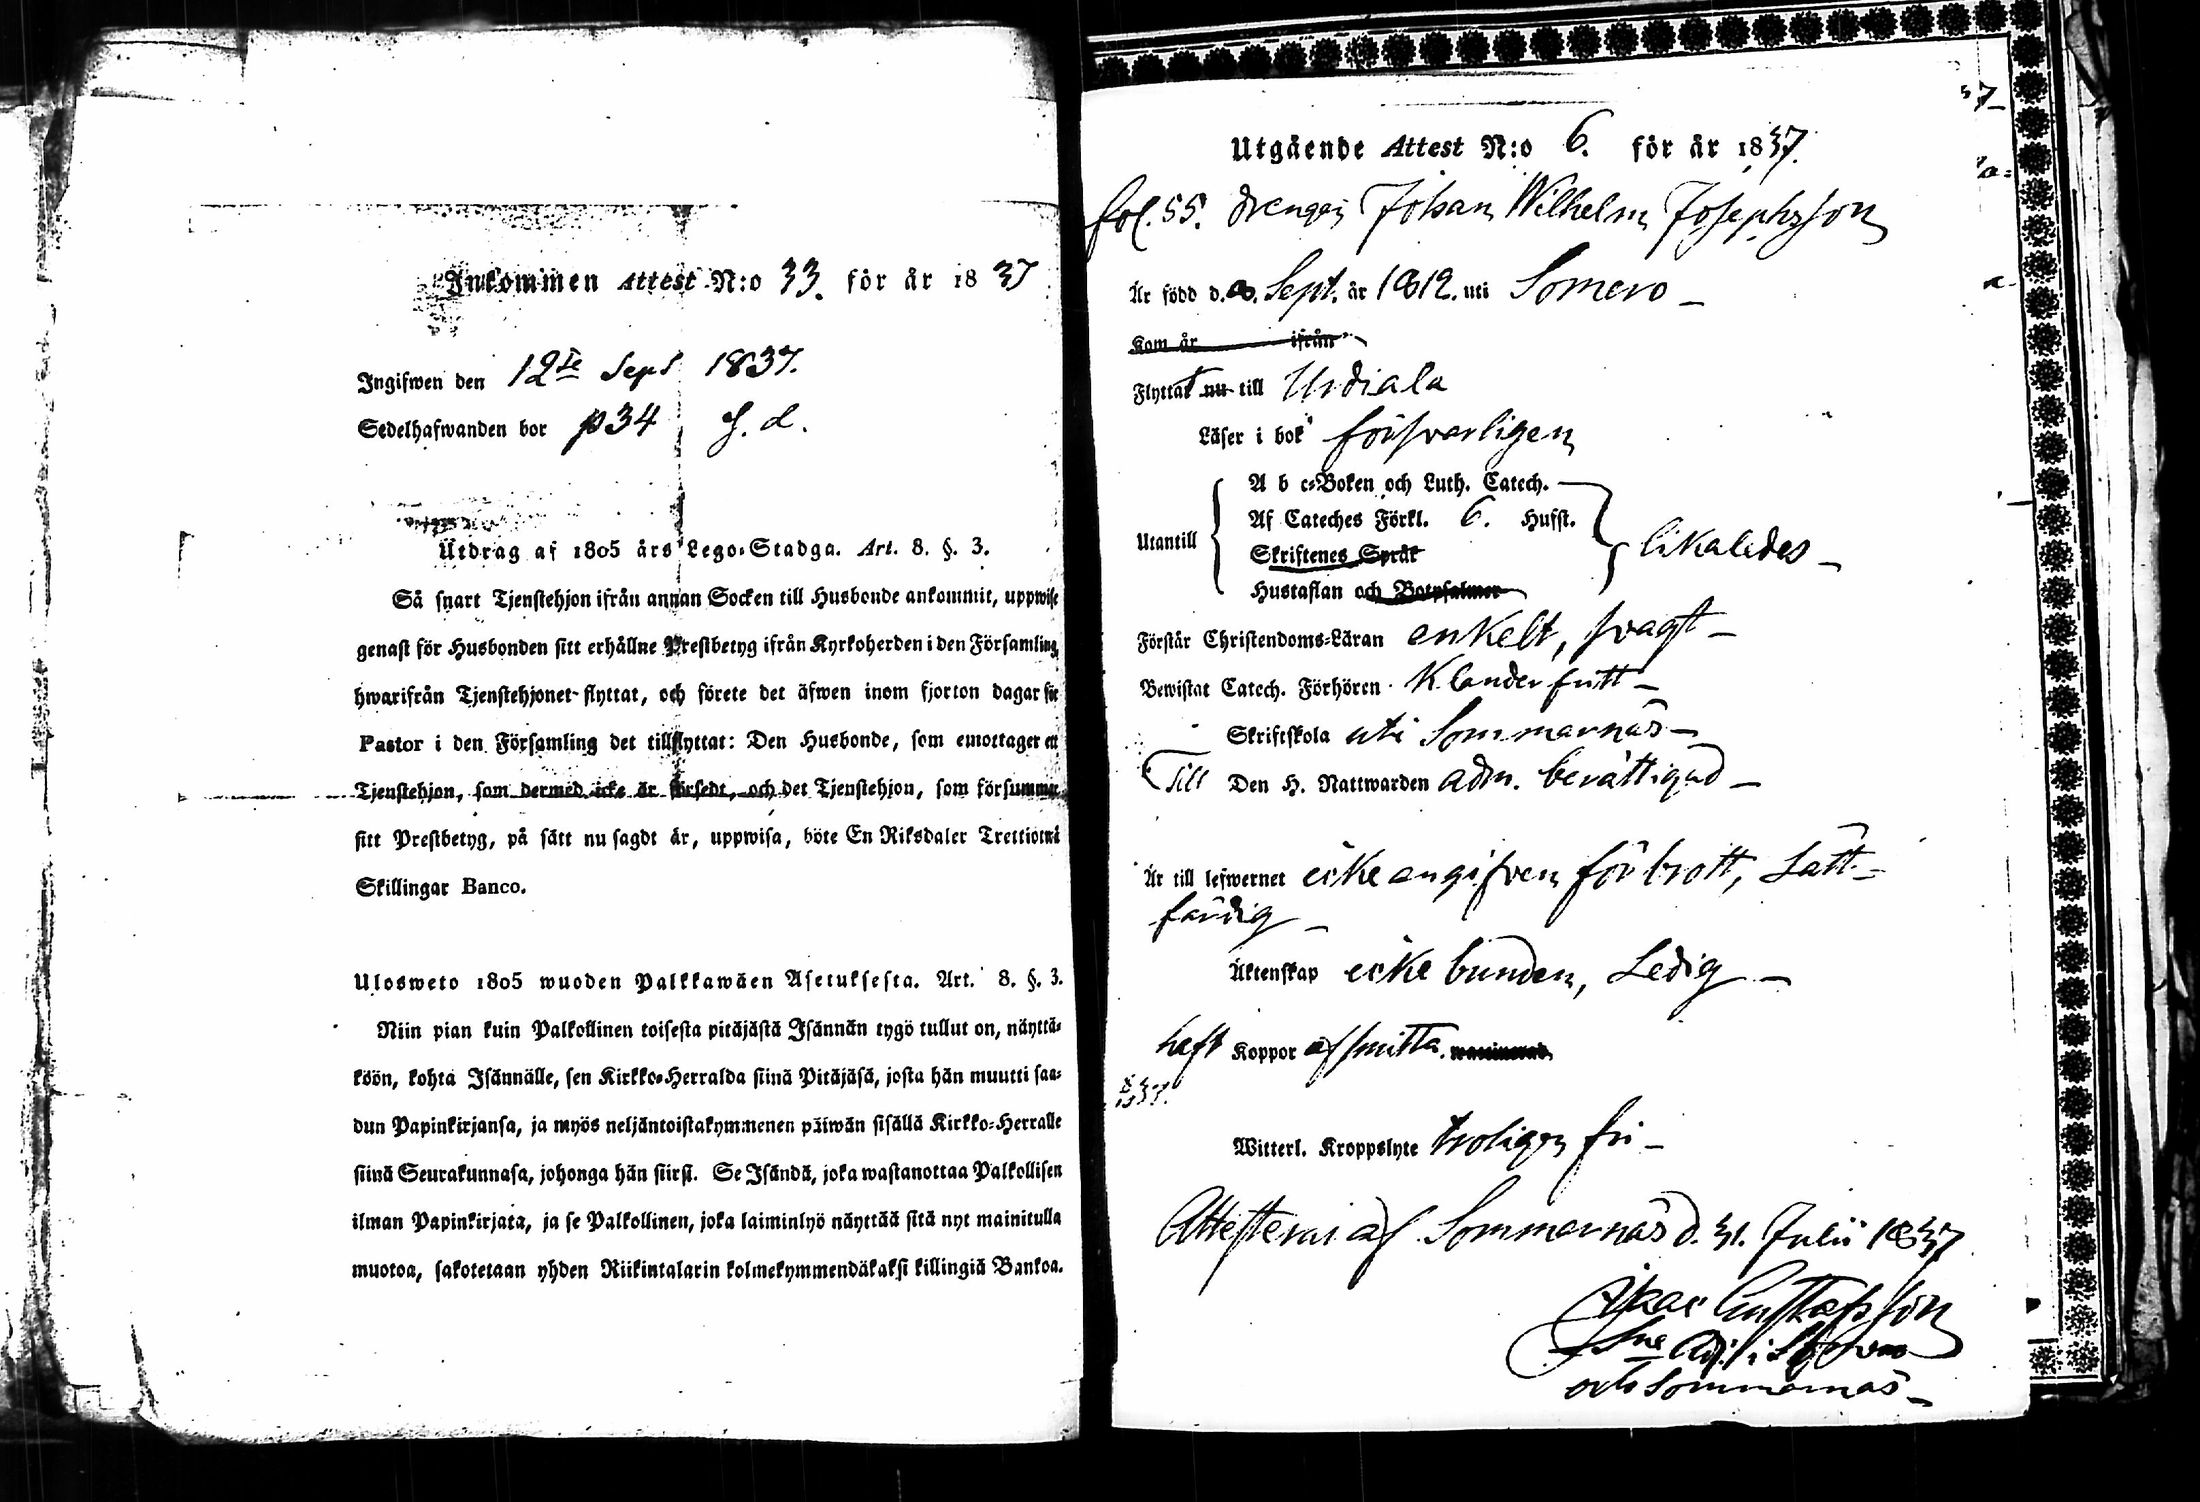 Inkommen Attest N:o 33. för år 1837
Ingifwen den 12te Sept 1837.
Sedelhafwanden bor p 34 f. d.
Utdrag af 1805 års Lego-Stadga. Art. 8. §. 3.
Så snart Tjenstehjon ifrån annan Socken till Husbonde ankommit, uppwise
genast för Husbonden sitt erhållne Prestbetyg ifrån Kyrkoherden i den Församling,
hwarifrån Tjenstehjonet flyttat, och förete det äfwen inom fjorton dagar för
Pastor i den Församling det tillflyttat: Den Husbonde, som emottager ett
Tjenstehjon, som dermed icke är försedt, och det Tjenstehjon, som försummar
sitt Prestbetyg, på sätt nu sagdt är, uppwisa, böte En Riksdaler Trettiotwå
Skillingar Banco.
Ulosweto 1805 wuoden Palkkawäen Asetuksesta. Art. 8. §. 3.
Niin pian kuin Palkollinen toisesta pitäjästä Isännän tygö tullut on, näyttä-
köön, kohta Isännälle, sen Kirkko-Herralda siinä Pitäjäsä, josta hän muutti saa-
dun Papinkirjansa, ja myös neljäntoistakymmenen päiwän sisällä Kirkko-Herralle
siinä Seurakunnasa, johonga hän siirsi. Se Isändä, joka wastanottaa Palkollisen
ilman Papinkirjata, ja se Palkollinen, joka laiminlyö näyttää sitä nyt mainitulla
muotoa, sakotetaan yhden Riikintalarin kolmekymmendäkaksi killingiä Bankoa.
Utgående Attest N:o 6. för år 1837.
fol. 55. Drengen Johan Wilhelm Josephsson
Är född d. Sept. år 1812. uti Somero
Kom år ifrån
Flyttat nu till Urdiala
Läser i bok försvarligen
A b c-Boken och Luth. Catech.
Af Cateches Förkl. 6. Hufst.
Utantill likaledes
Skriftenes Språk
Hustaflan och Botpsalmer
Förstår Christendoms-Läran enkelt, svagt
Bewistat Catech. Förhören Klanderfritt
Skriftskola uti Sommarnäs
Till Den H. Nattwarden adm. berättigad
Är till lefwernet icke angifven för brott, Lätt-
färdig
Äktenskap icke bunden, Ledig
haft Koppor af smitta. waccinerad
Witterl. Kroppslyte troligen fri
Attesterar af Sommarnäs d. 31. Julii 1837
Gustafsson
och Sommarnäs